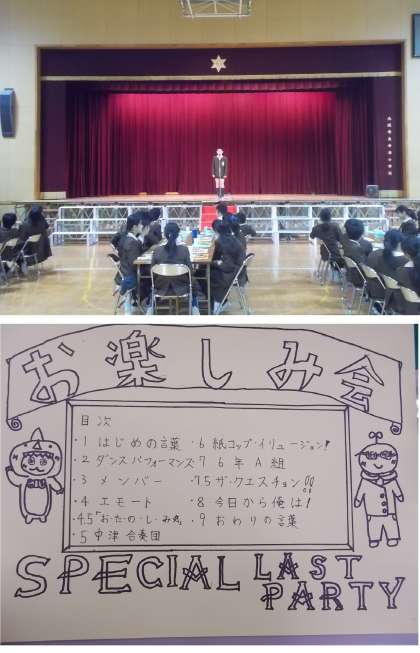 お楽しみ会
目次
・1 はじめの言葉
・2 ダンスパフォーマンス
・3 メンバー
・4 エモート
・4.5「お・た・の・し・み・丸」
・5 中津 合奏団
・6 紙コップ・イリュージョン!
・7 6年A組
・7.5 ザ・クエスチョン!!
・8 今日から俺は!
・9 おわりの言葉
SPECIAL LAST
PARTY